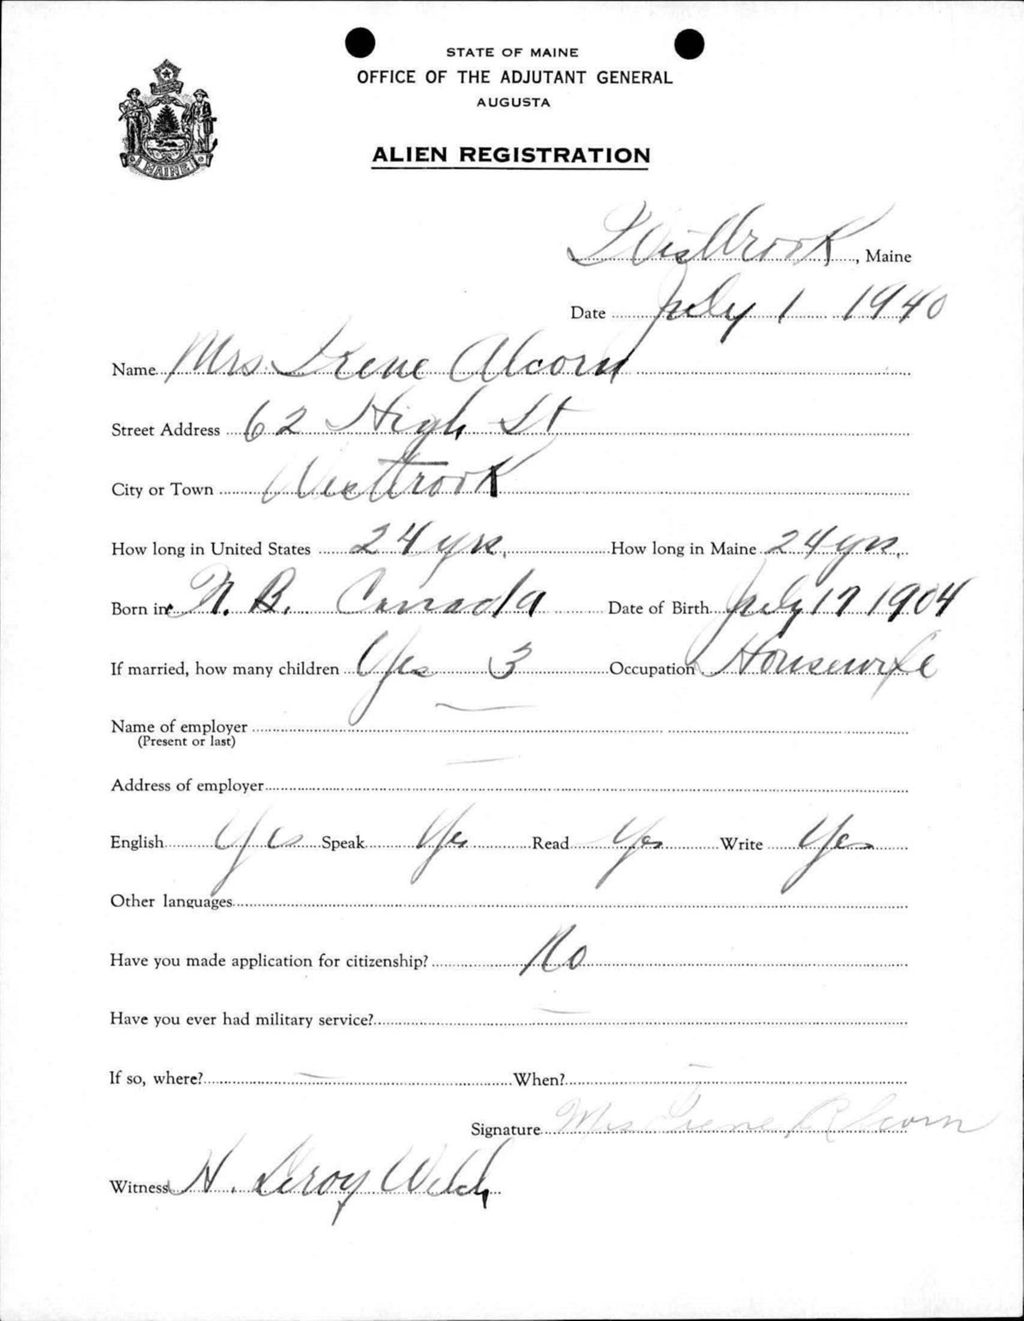 STATE OF MAINE
OFFICE OF THE ADJUTANT GENERAL
AUGUSTA
ALIEN REGISTRATION
MAINE
Westbrook, Maine
Date July 1 1940
Name Mrs. Irene Alcorn
Street Address 62 High St
City or Town Westbrook
How long in United States 24 yrs. How long in Maine 24 yrs.
Born in N. B. Canada Date of Birth July 17 1904
If married, how many children Yes 3 Occupation Housewife
Name of employer
(Present or last)
Address of employer
English Yes Speak Yes Read Yes Write Yes
Other languages
Have you made application for citizenship? No
Have you ever had military service? —
If so, where? — When? —
Signature Mrs Irene Alcorn
Witness H. Leroy Welch